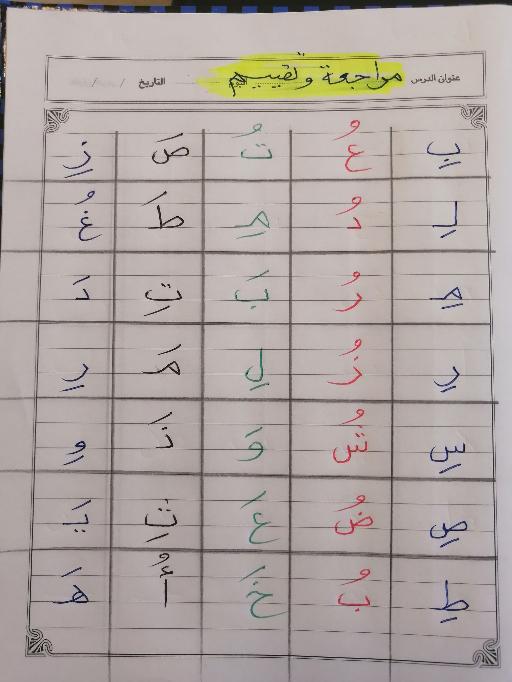 عنوان الدرس مراجعة وتقييم التاريخ / /
بِ عُ تُ صَ زِ
لِ دُ مِ طَ غُ
مِ رُ بَ تِ دَ
رِ زُ لِ مَ رِ
سِ شُ وَ ذَ وِ
صِ ضُ عَ تِ يَ
طِ بُ خَ أُ هَ